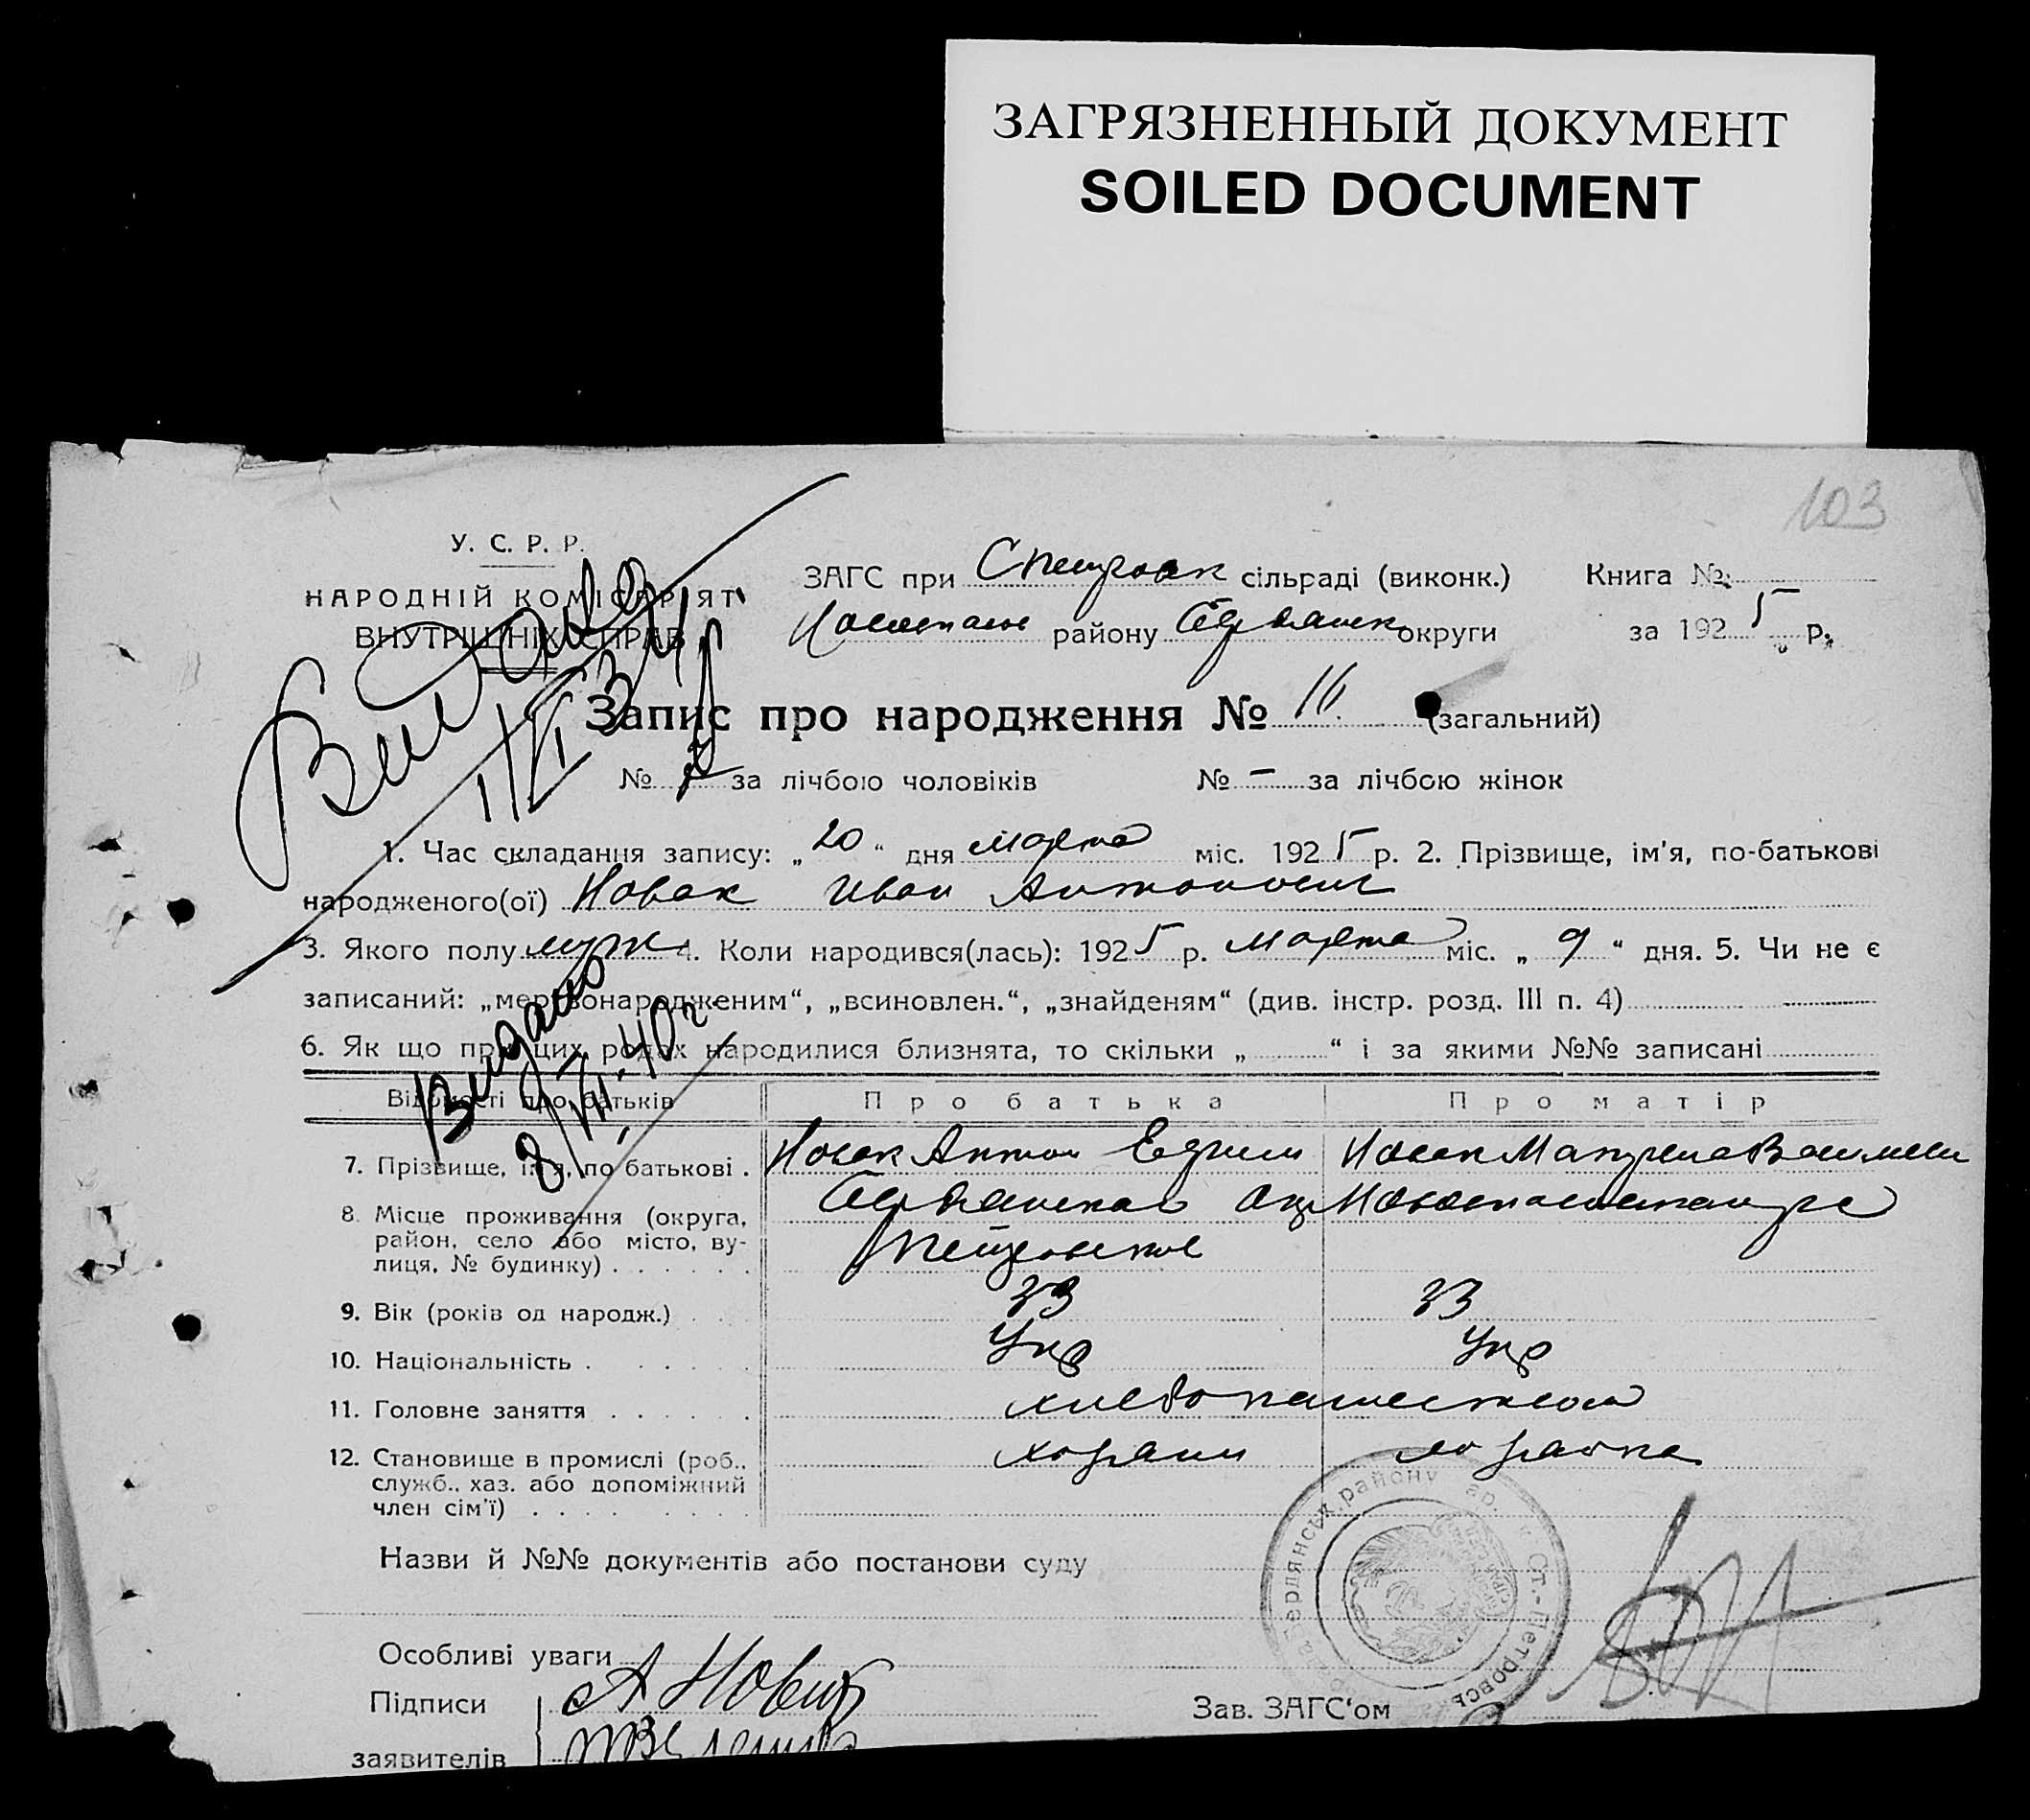 ЗАГРЯЗНЕННЫЙ ДОКУМЕНТ
SOILED DOCUMENT
103
У. С. Р. Р.
НАРОДНІЙ КОМІСАРІЯТ
ВНУТРІШНІХ СПРАВ
ЗАГС при СПетровск сільраді (виконк.)
Книга №
Новоспасск району Бердянск округи
за 1925 р.
Запис про народження № 16. (загальний)
№ за лічбою чоловіків № — за лічбою жінок
1. Час складання запису: „20“ дня марта міс. 1925 р. 2. Прізвище, ім'я, по-батькові
народженого(ої) Новак Иван Антонович
3. Якого полу муж 4. Коли народився(лась): 1925 р. марта міс. „9“ дня. 5. Чи не є
записаний: „мертвонародженим“, „всиновлен.“, „знайденям“ (див. інстр. розд. III п. 4)
6. Як що при цих родах народилися близнята, то скільки „ “ і за якими №№ записані
Видано
8/VII.40г.
Відомості про батьків
Про батька
Про матір
7. Прізвище, ім'я, по батькові .
Новак Антон
Новак
8. Місце проживання (округа,
район, село або місто, ву-
лиця, № будинку) . . . . . .
Бердянская окр
Петровское
9. Вік (років од народж.) . . .
33
33
10. Національність . . . . .
Укр
Укр
11. Головне заняття . . . . . .
хлебопашество
12. Становище в промислі (роб.,
служб., хаз. або допоміжний
член сім'ї) . . . . . . . .
хозяин
хозяйка
Назви й №№ документів або постанови суду
Бердянськ. району
Ст.-Петровсь
Особливі уваги
Підписи
А Новак
Зав. ЗАГС'ом
заявителів